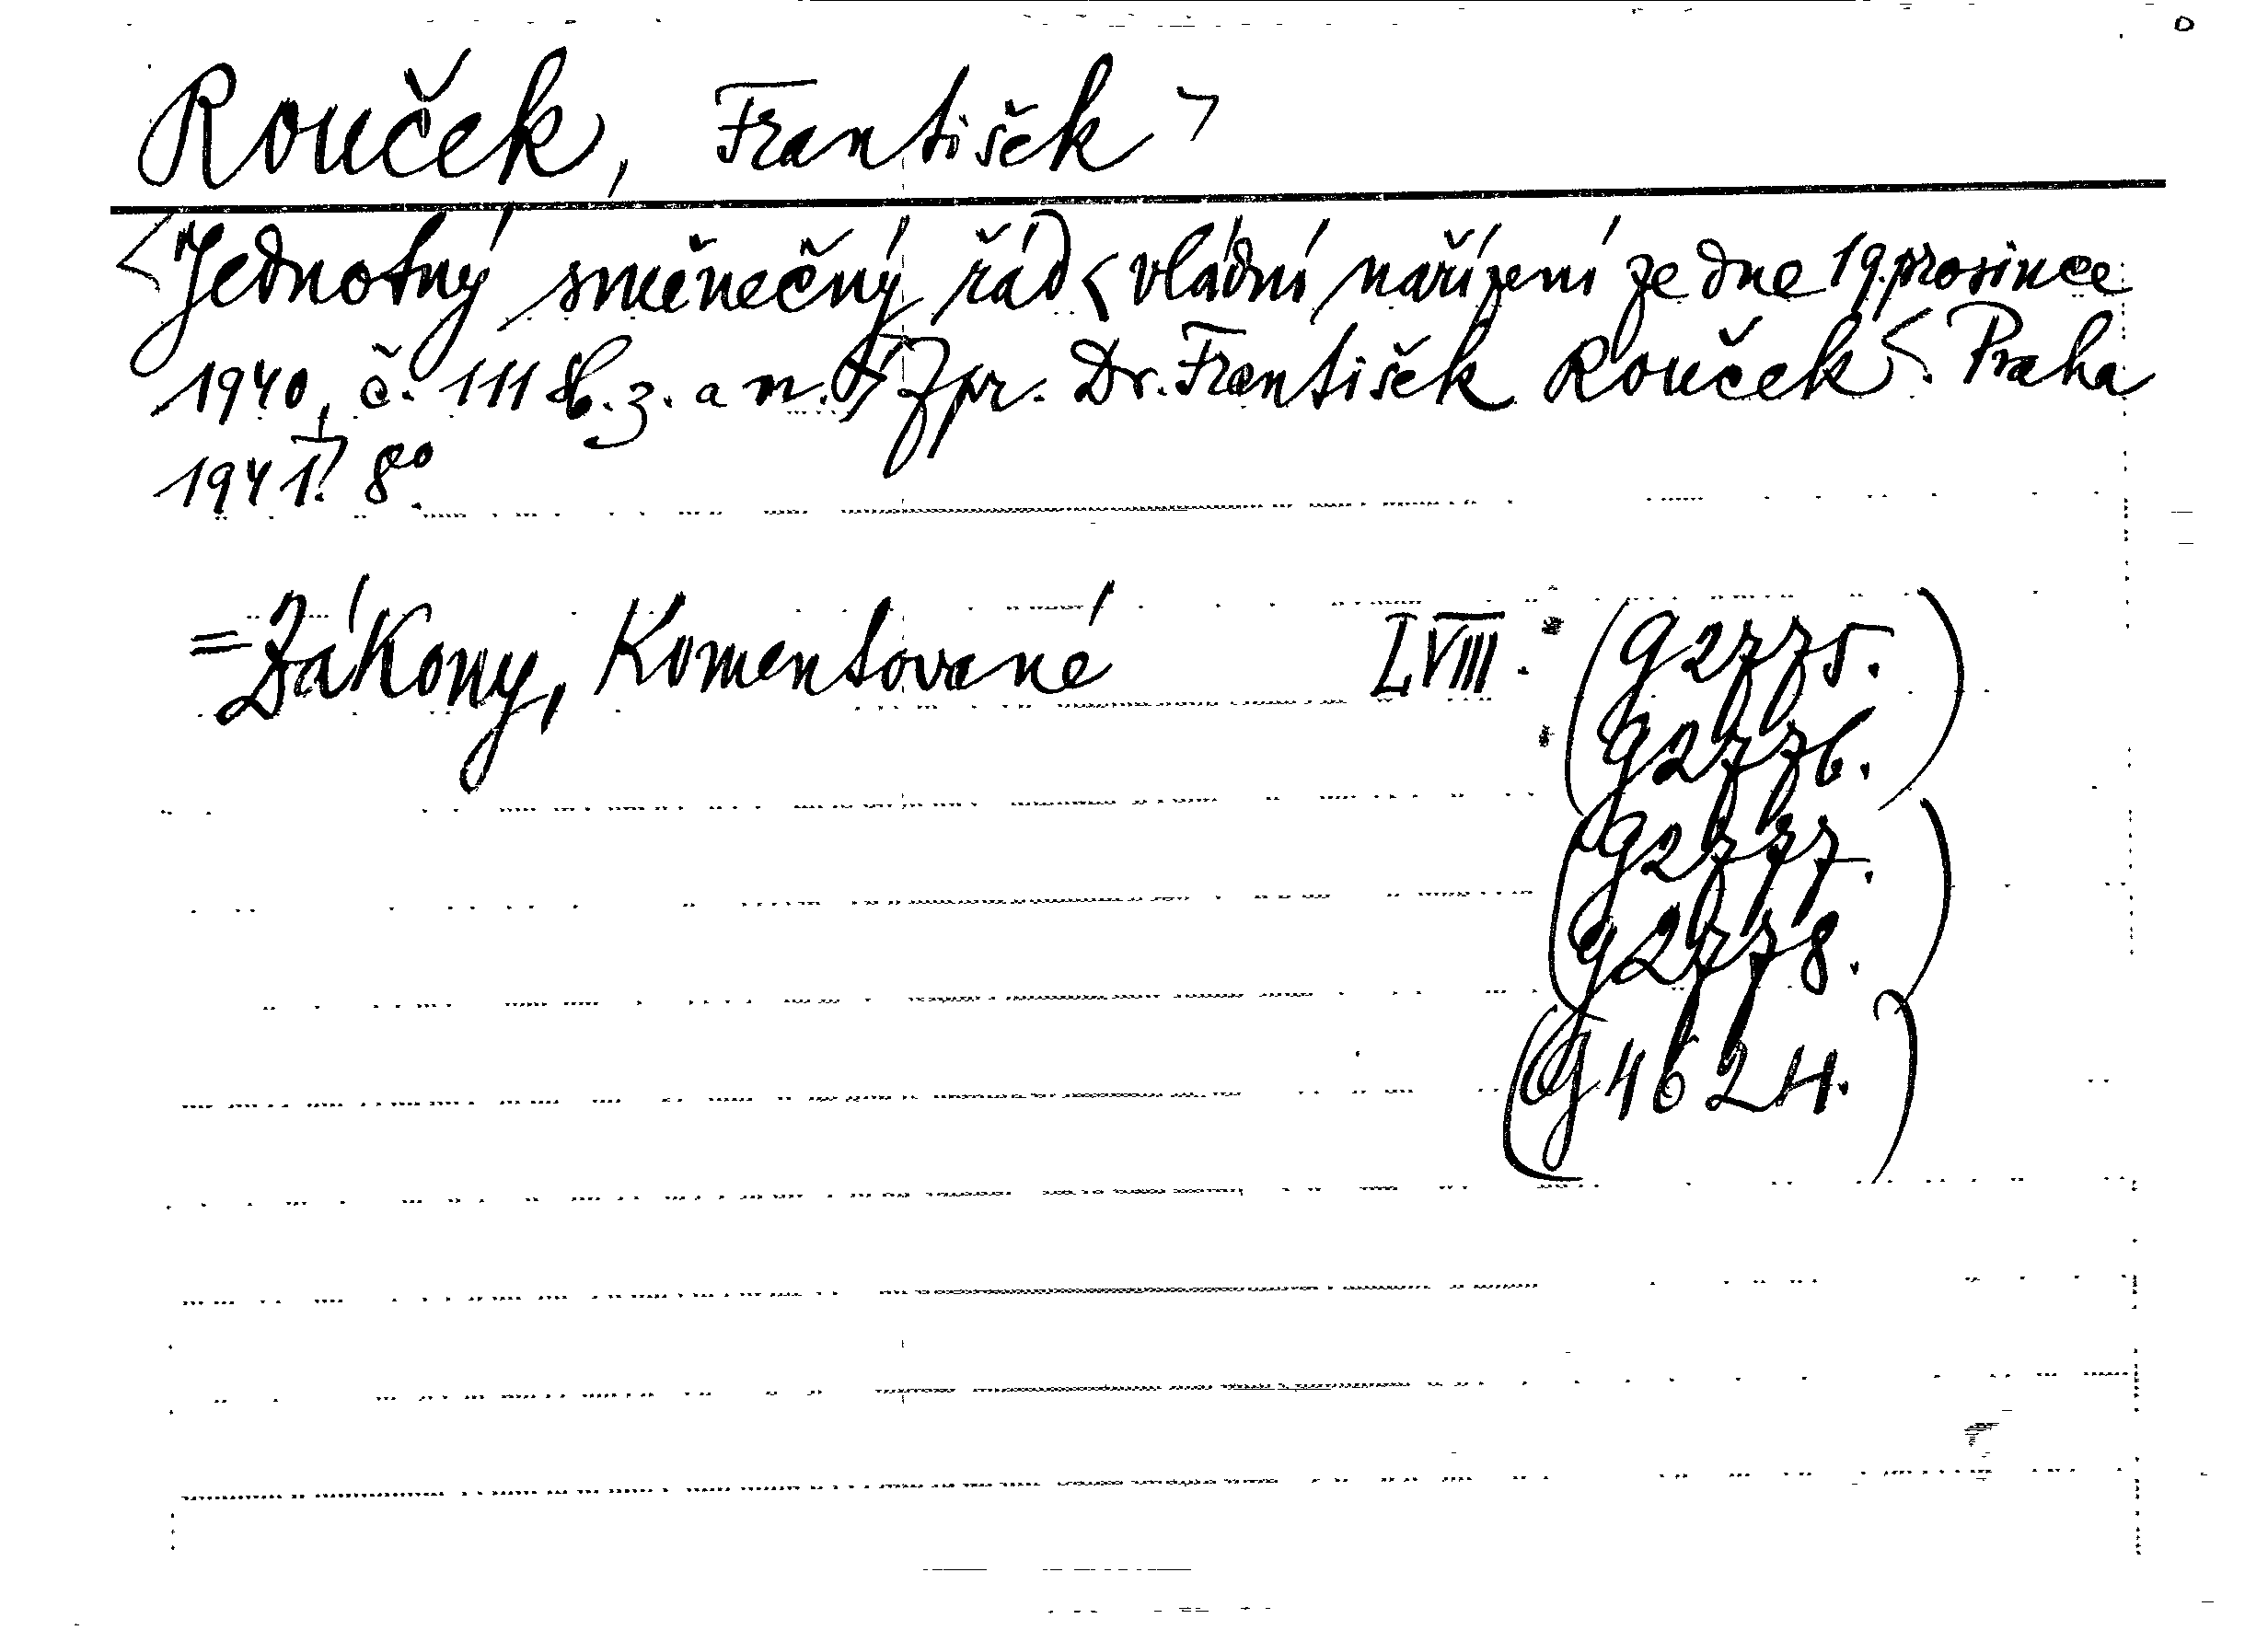 Rouček, František >
< Jednotný směnečný řád < vládní nařízení ze dne 19. prosince
1940, č. 111 Sb. z. a n. > Zpr. Dr. František Rouček <. Praha
1941. 8°.
= Zákony, Komentované LVIII. (G 2775.
G 2776.)
(G 2777.
G 2778.)
(G 4624.)